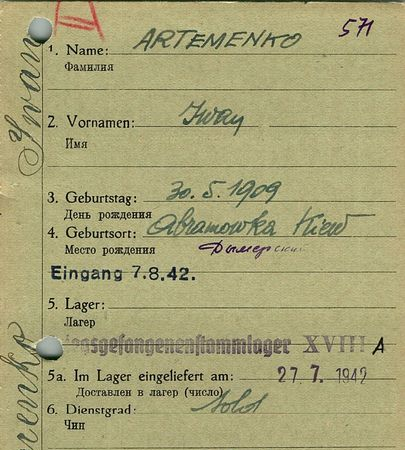 571
1. Name: ARTEMENKO
Фамилия
2. Vornamen: Iwan
Имя
3. Geburtstag: 30.5.1909
День рождения
4. Geburtsort: Abramowka Kiew
Место рождения Дымерский
Eingang 7.8.42.
5. Lager:
Лагер
gsgefangenenstammlager XVIII A
5a. Im Lager eingeliefert am: 27.7.1942
Доставлен в лагер (число)
6. Dienstgrad: Sold
Чин
Iwan
enko